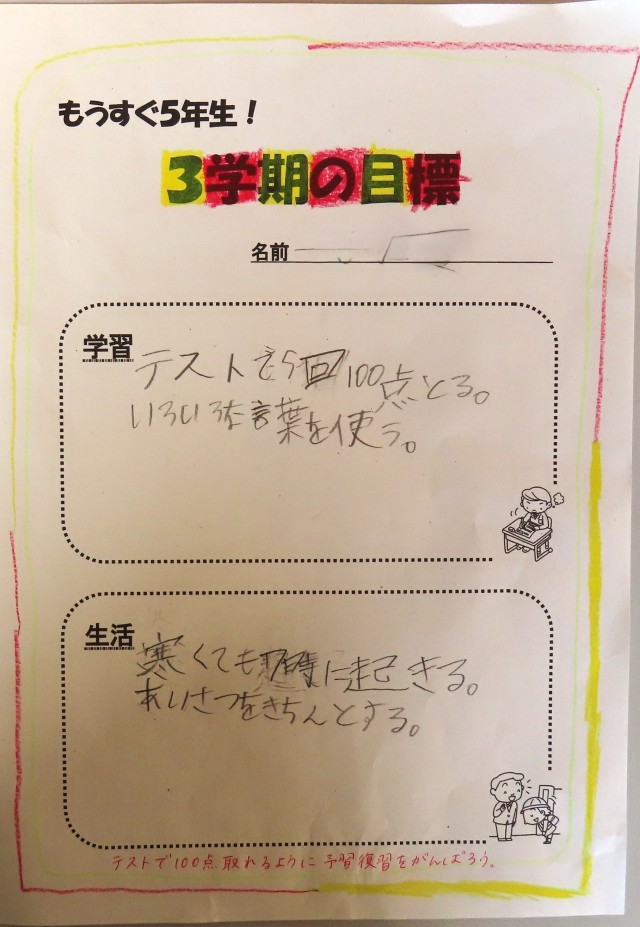 もうすぐ5年生！
3学期の目標
名前
学習
テストで5回100点とる。
いろいろな言葉を使う。
生活
寒くても7時に起きる。
あいさつをきちんとする。
テストで100点取れるように予習復習をがんばろう。